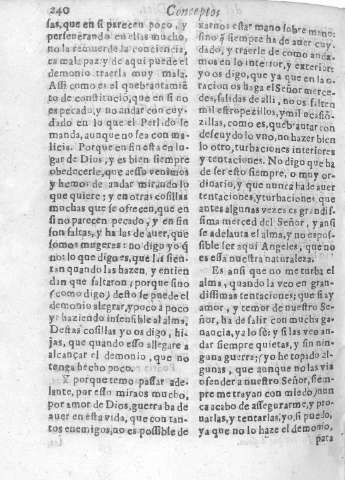 240 Conceptos
sas, que en si parecen poco, y
perseuerando en ellas mucho,
no la recuerde la conciencia,
es mala paz: y de aqui puede el
demonio traerla muy mala.
Assi como es el quebrantamie
to de constituciõ, que en si no
es pecado, y no andar con cuy-
dado en lo que el Perlado se
manda, aunque no sea con ma-
licia. Porque en fin esta en lu-
gar de Dios, y es bien siempre
obedecerle, que a esso venimos
y hemos de andar mirando lo
que quiere; y en otras cosillas
muchas que se ofrecen, que en
si no parecen pecado, y en fin
son faltas, y ha las de auer, que
somos mugeres: no digo yo q̃
no: lo que digo es, que las sien-
tan quando las hazen, y entien
dan que faltaron; porque sino
(como digo) desto se puede el
demonio alegrar, y poco à poco
yr haziendo insensible al alma.
Destas cosillas yo os digo, hi-
jas, que quando esso allegare a
alcançar el demonio, que no
tenga hecho poco.
Y porque temo passar ade-
lante, por esso miraos mucho,
por amor de Dios, guerra ha de
auer en esta vida, que con tan-
tos enemigos, no es possible de
xarnos estar mano sobre mano:
sino q̃ siempre ha de auer cuy-
dado, y traerle de como anda-
mos en lo interior, y exterior:
yo os digo, que ya que en la o-
racion os haga el Señor merce-
des, salidas de alli, no os falten
mil estropezillos, y mil ocasiõ-
zillas, como es, quebrantar con
descuydo lo vno, no hazer bien
lo otro, turbaciones interiores
y tentaciones. No digo que ha
de ser esto siempre, o muy or-
dinario, y que nunca ha de auer
tentaciones, y turbaciones, que
antes algunas vezes es grandis-
sima merced del Señor, y ansi
se adelanta el alma, y no es pos-
sible ser aqui Angeles, que no
es essa nuestra naturaleza.
Es ansi que no me turba el
alma, quando la veo en gran-
dissimas tentaciones; que si ay
amor, y temor de nuestro Se-
ñor, ha de salir con mucha ga-
nancia, ya lo sè: y si las veo an-
dar siempre quietas, y sin nin-
guna guerra; (yo he topado al-
gunas, que aunque no las via
ofender a nuestro Señor, siem-
pre me trayan con miedo) nun
ca acabo de assegurarme, y pro-
uarlas, y tentarlas, yo si puedo,
ya que no lo haze el demonio,
para